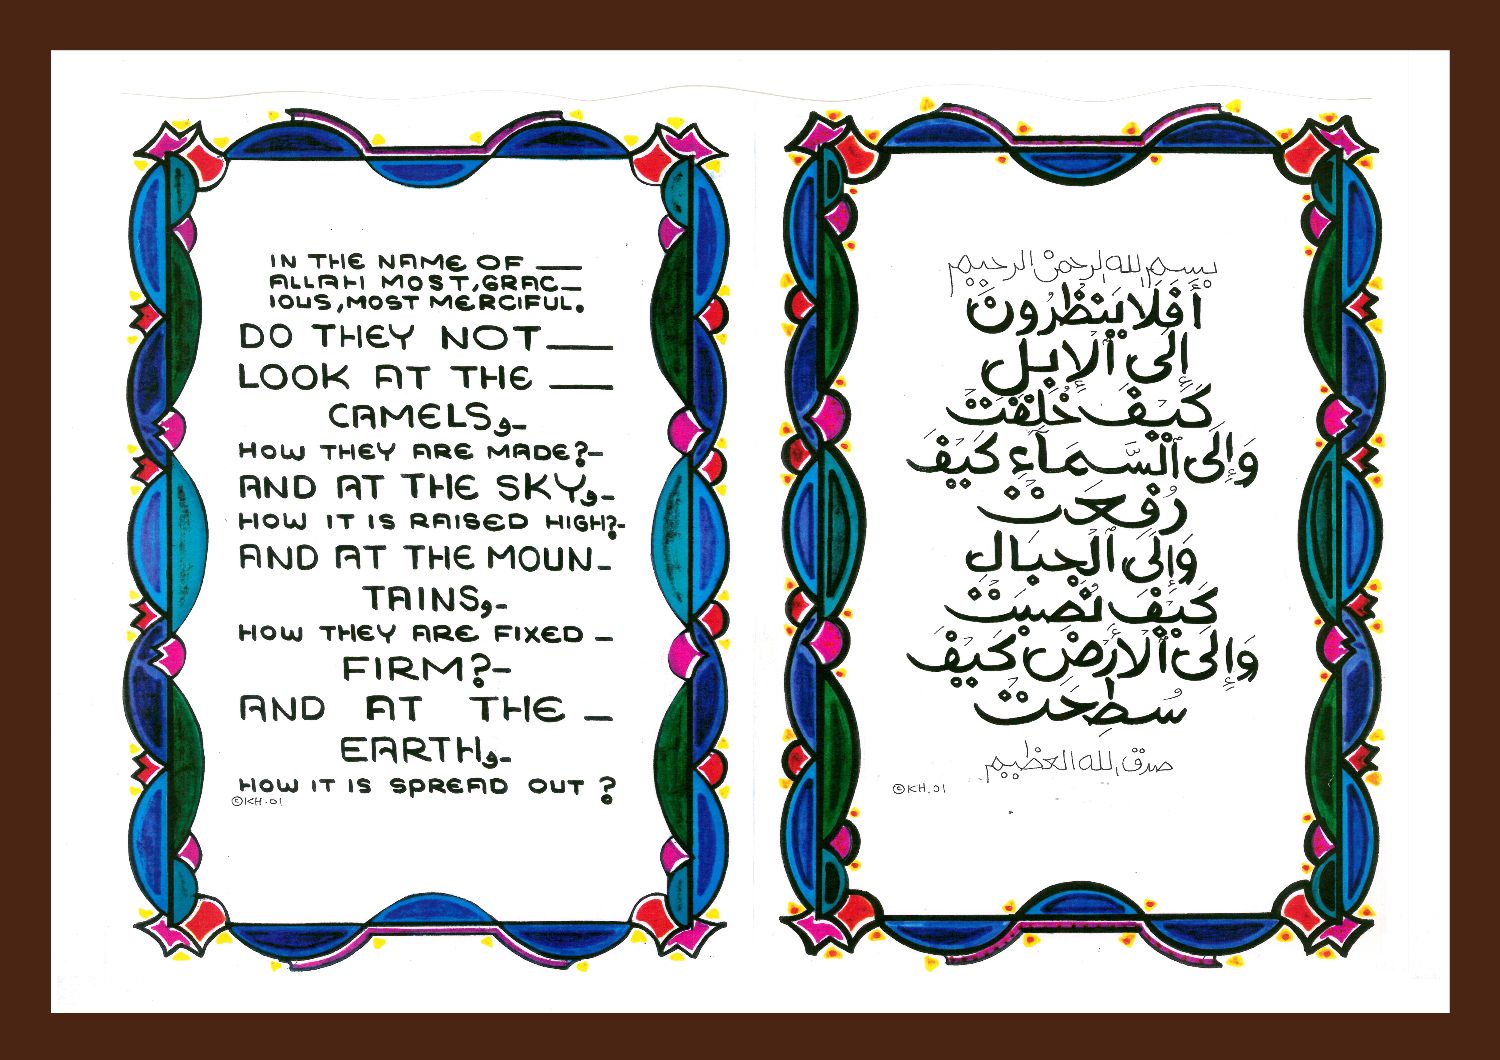 IN THE NAME OF __
ALLAH MOST, GRAC_
IOUS, MOST MERCIFUL.
DO THEY NOT __
LOOK AT THE __
CAMELS,-
HOW THEY ARE MADE?-
AND AT THE SKY,-
HOW IT IS RAISED HIGH?-
AND AT THE MOUN-
TAINS,-
HOW THEY ARE FIXED -
FIRM?-
AND AT THE _
EARTH,-
HOW IT IS SPREAD OUT ?
©KH.01
بسم الله الرحمن الرحيم
أَفَلَا يَنظُرُونَ
إِلَى ٱلْإِبِلِ
كَيْفَ خُلِقَتْ
وَإِلَى ٱلسَّمَآءِ كَيْفَ
رُفِعَتْ
وَإِلَى ٱلْجِبَالِ
كَيْفَ نُصِبَتْ
وَإِلَى ٱلْأَرْضِ كَيْفَ
سُطِحَتْ
صدق الله العظيم
©KH.01